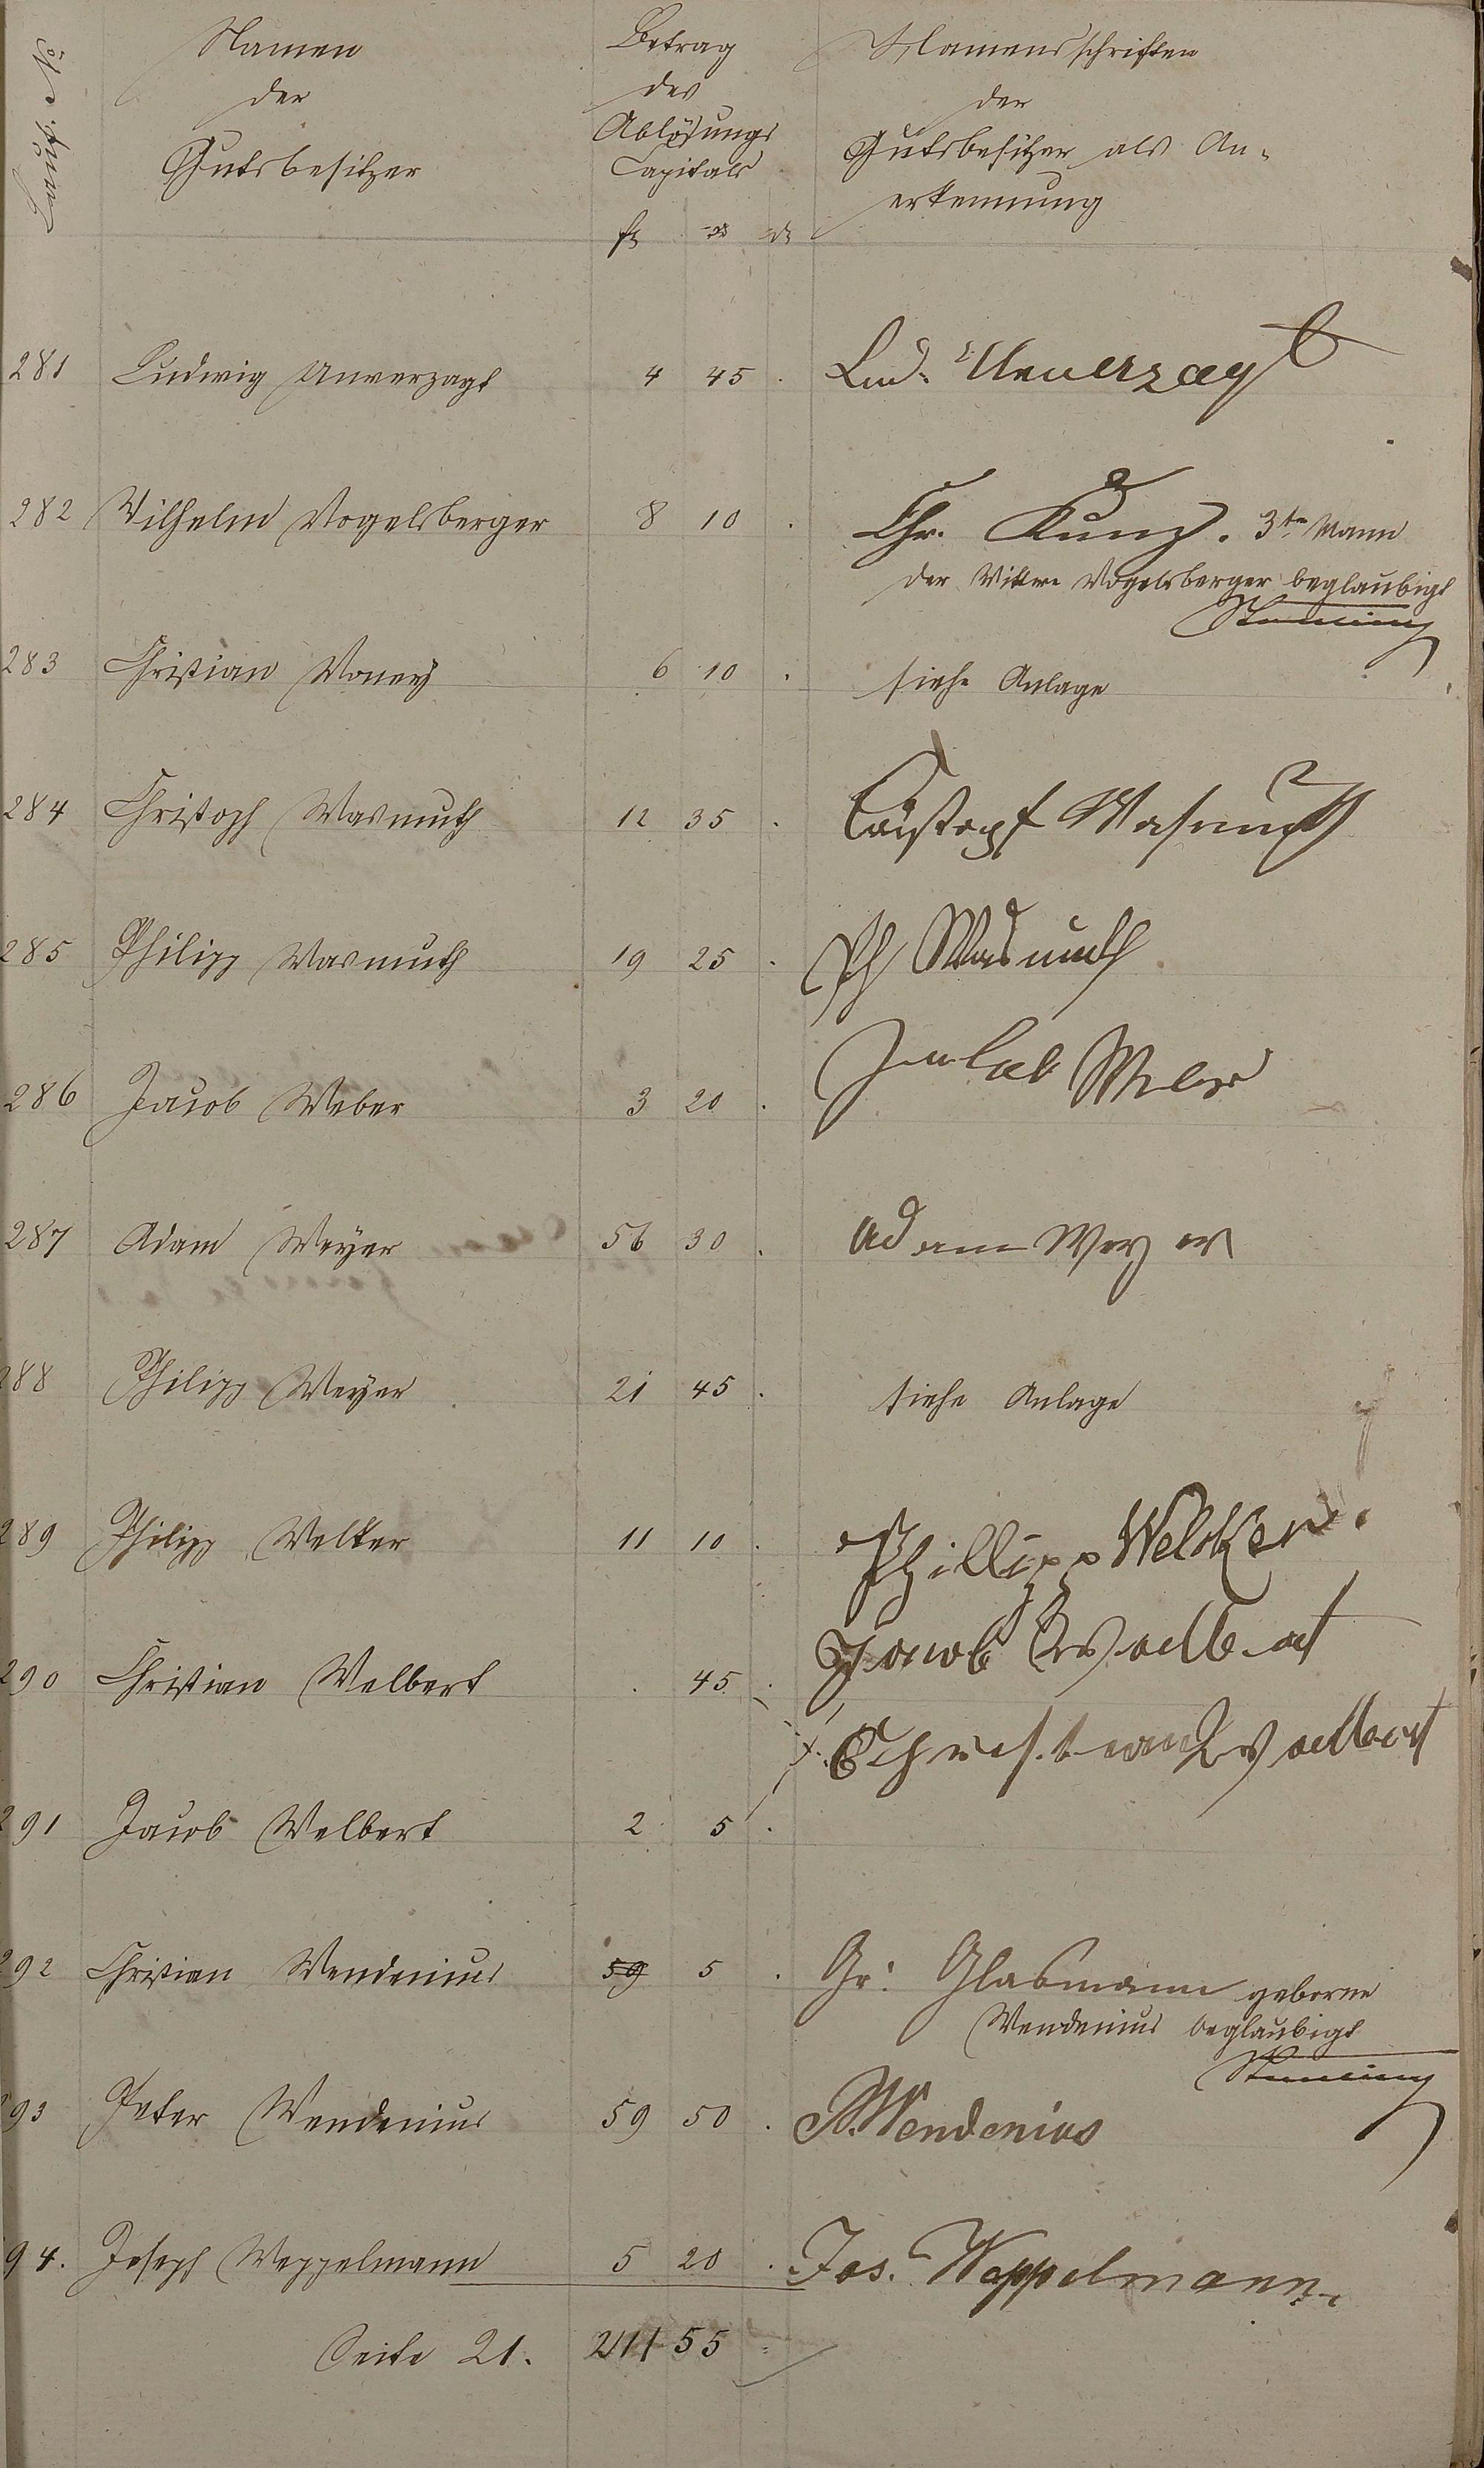 Namen
der
Gutsbesitzer
Betrag
des
Ablösungs
Capitals
Namensschriften
der
Gutsbesitzer als An-
erkennung
281 Ludwig Unverzagt 4 45 . Lud. Unverzagt
282 Wilhelm Vogelsberger 8 10 . Chr. Kunz. 3te Mann
der Wittwe Vogelsberger beglaubigt
283 Christian 6 10 . siehe Anlage
284 Christoph Wasmuth 12 35 . Wasmuth
285 Philipp Wasmuth 19 25 . Ph Wasmuth
286 Jacob Weber 3 20 . Jakob Weber
287 Adam Weyer 56 30 . Adam Weyer
288 Philipp Weyer 21 45 . siehe Anlage
289 Philipp Welker 11 10 . Phillipp Welcker.
290 Christian Welbert . 45 . Jacob Welbert
Christian Welbert
291 Jacob Welbert 2 5 .
292 Christian Wendenius 59 5 . Gr: Glasmann geborne
Wendenius beglaubigt
293 Peter Wendenius 59 50 . P. Wendenius
294. Joseph Weppelmann 5 20 . Jos. Weppelmann.
Seite 21. 211 55